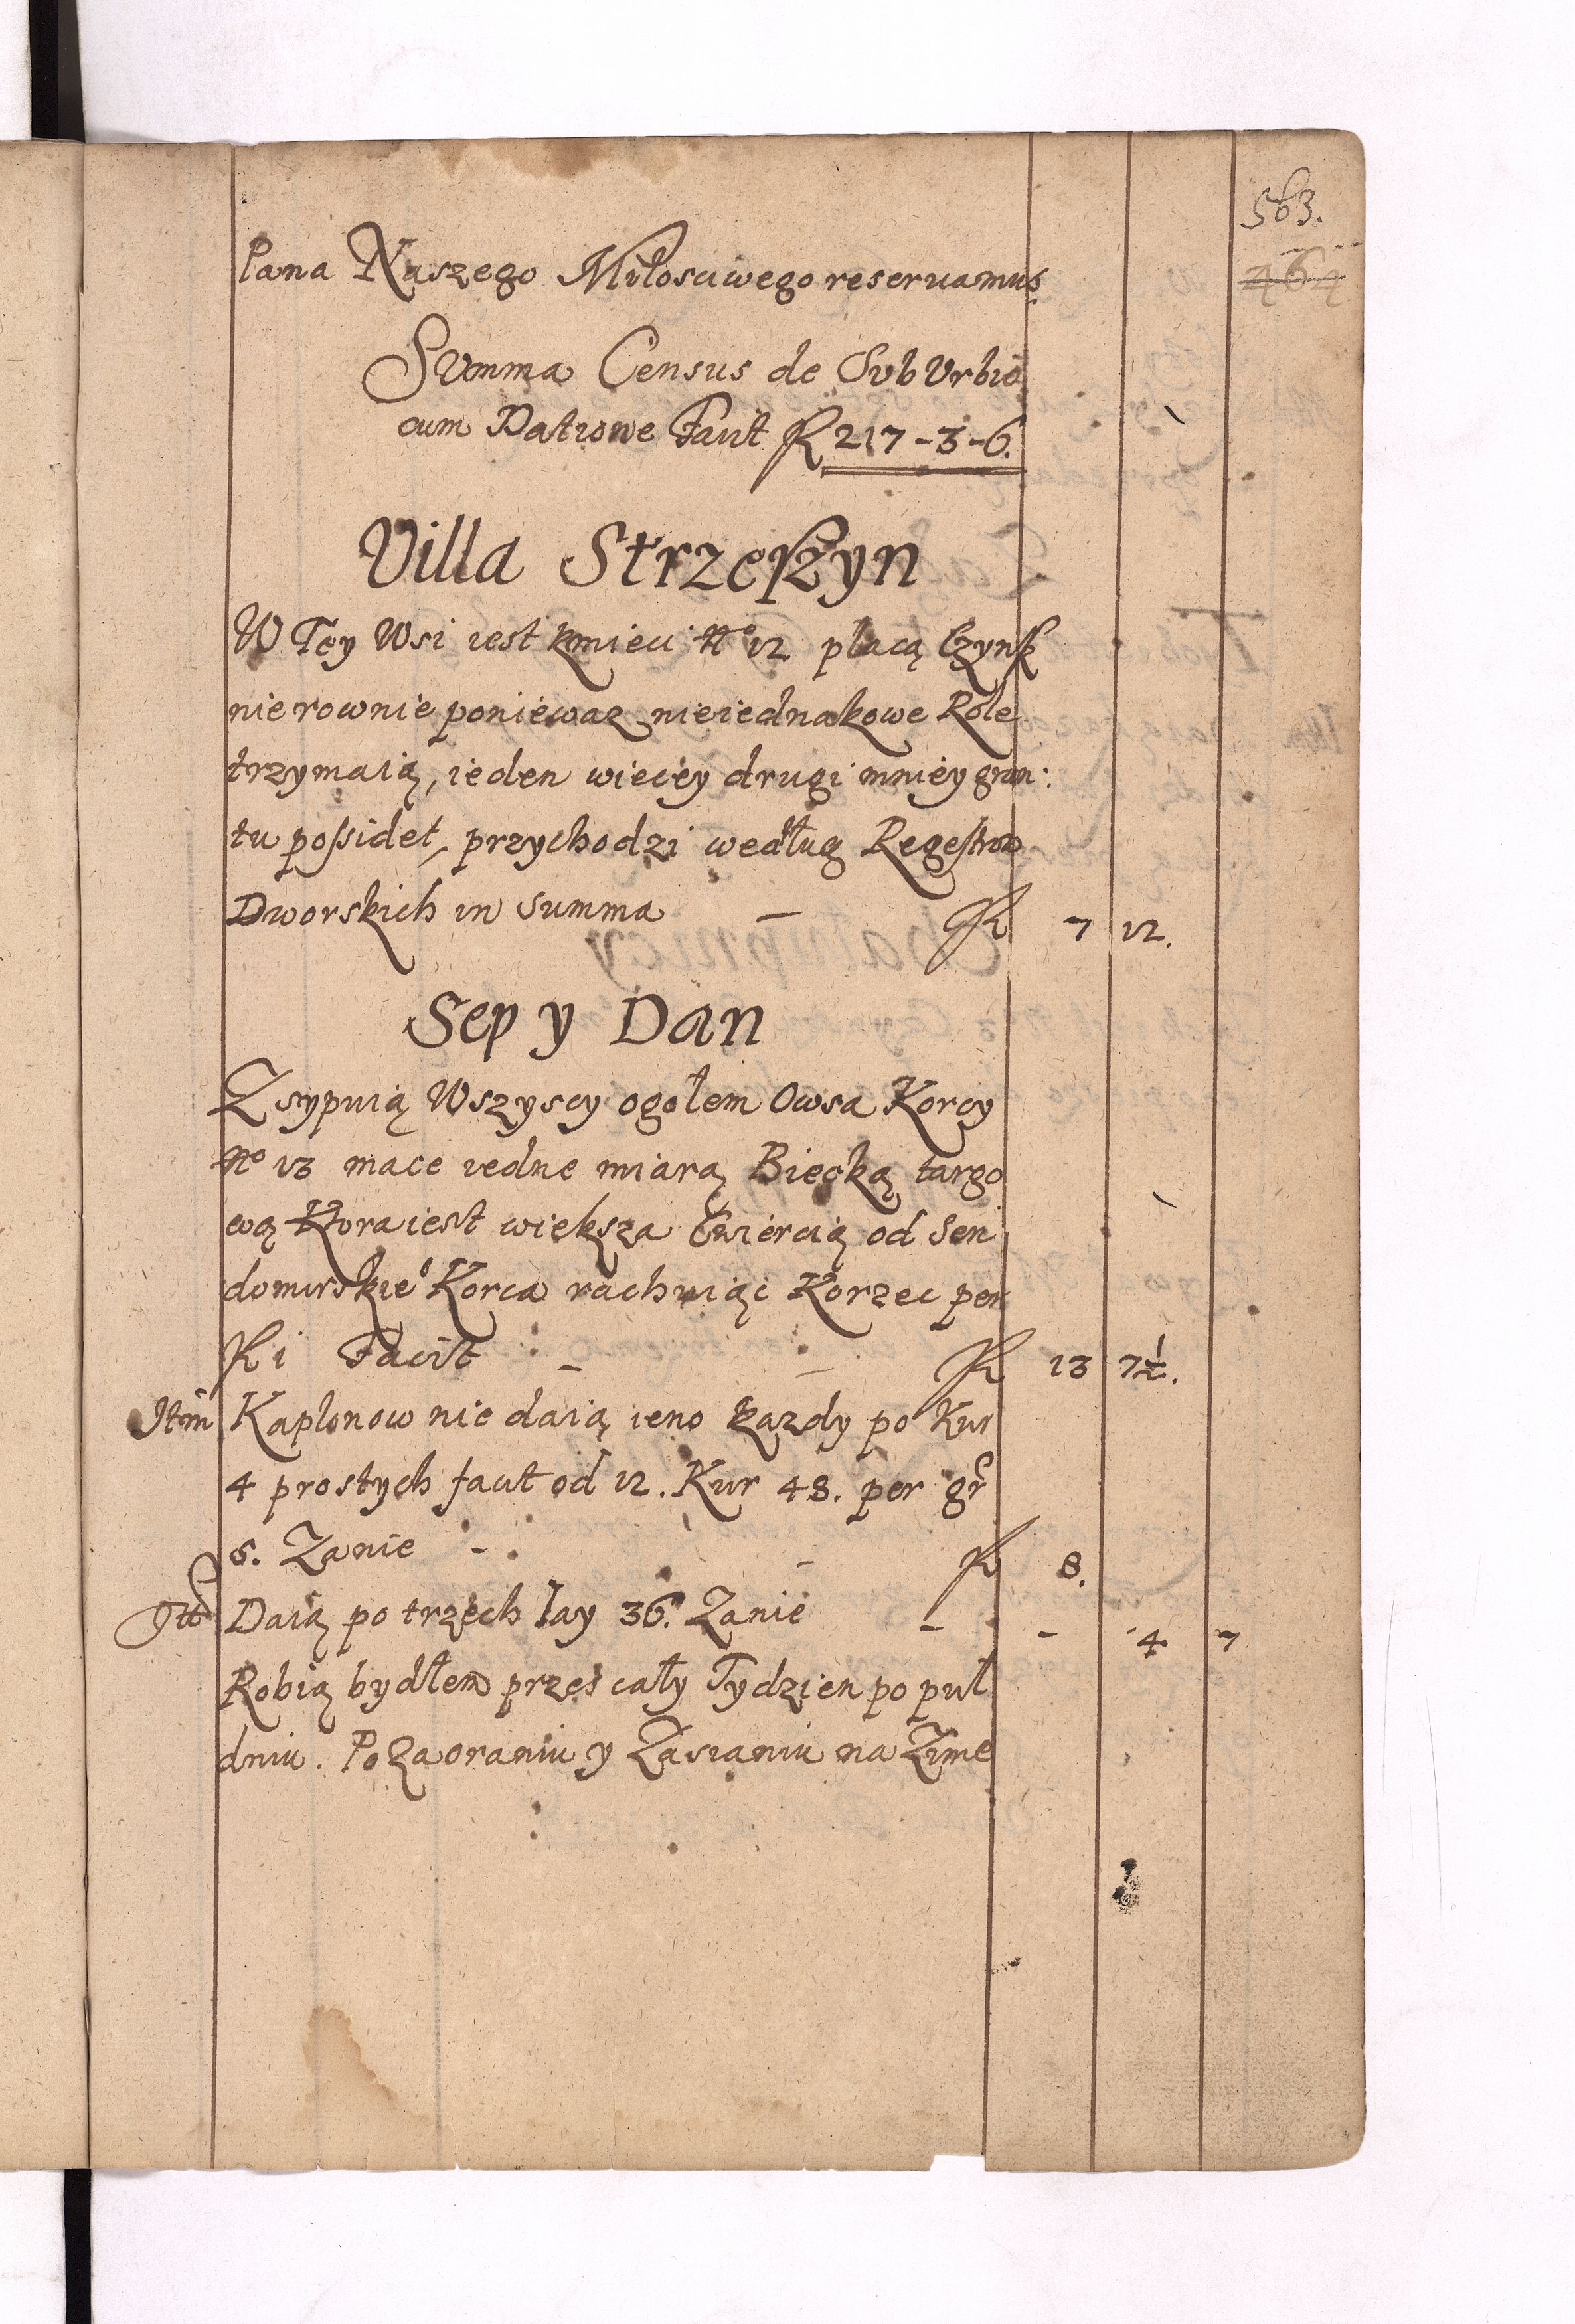 563.
464
Pana Naszego Miłosciwego reseruamus.
Summa Census de Sub Urbio
cum Datione Facit fl 217-3-6.
Villa Strzeszyn
W Tey Wsi iest kmieci No 12 płacą Czynsz
nierownie poniewaz nieiednakowe Role
trzymaią, ieden wiecey drugi mniey grun:
tu possidet, przychodzi według Regestrow
Dworskich in summa - fl 7 12.
Sep y Dan
Zsypuią Wszyscy ogołem Owsa Korcy
No 13 mace iedne miarą Biecką targo
wą Ktora iest większa Cwiercią od Sen
domirskieo Korca rachuiąc Korzec per
fl 1 Facit - - fl 13 7½.
Itm Kapłonow nie daią ieno kazdy po Kur
4 prostych facit od 12. Kur 48. per gr
5. Zanie - - fl 8.
Itt Daią po trzech Iay 36. Zanie - - 4 7
Robią bydłem przes cały Tydzien po puł
dniu. Po Zaoraniu y Zasianiu na Zime